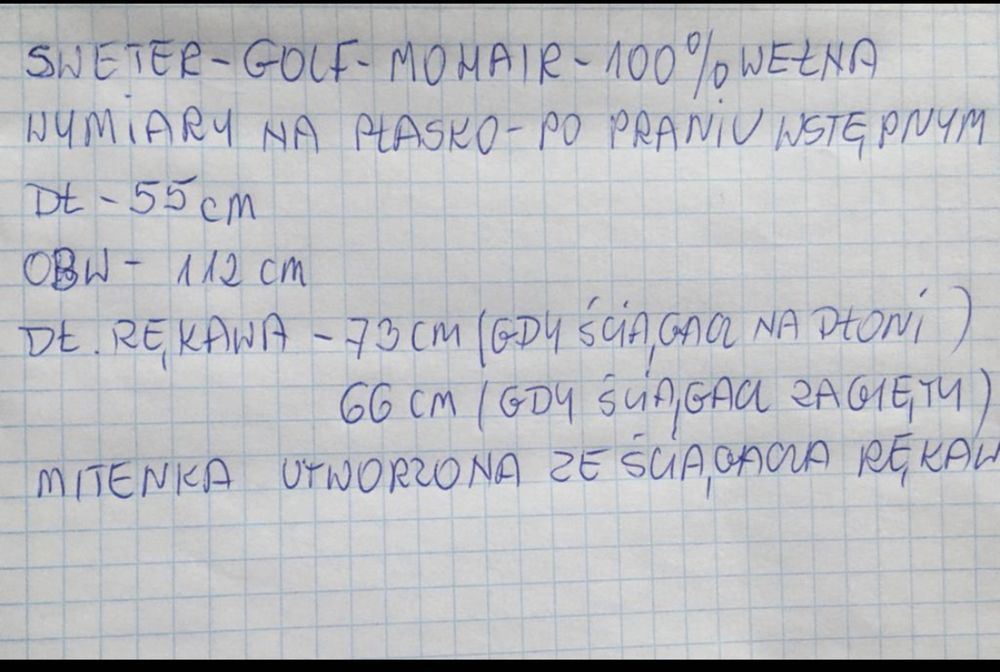 SWETER - GOLF - MOHAIR - 100% WEŁNA
WYMIARY NA PŁASKO - PO PRANIU WSTĘPNYM
DŁ - 55 cm
OBW - 112 cm
DŁ. RĘKAWA - 73 CM (GDY ŚCIĄGACZ NA DŁONI)
66 CM (GDY ŚCIĄGACZ ZAGIĘTY)
MITENKA UTWORZONA ZE ŚCIĄGACZA RĘKAW